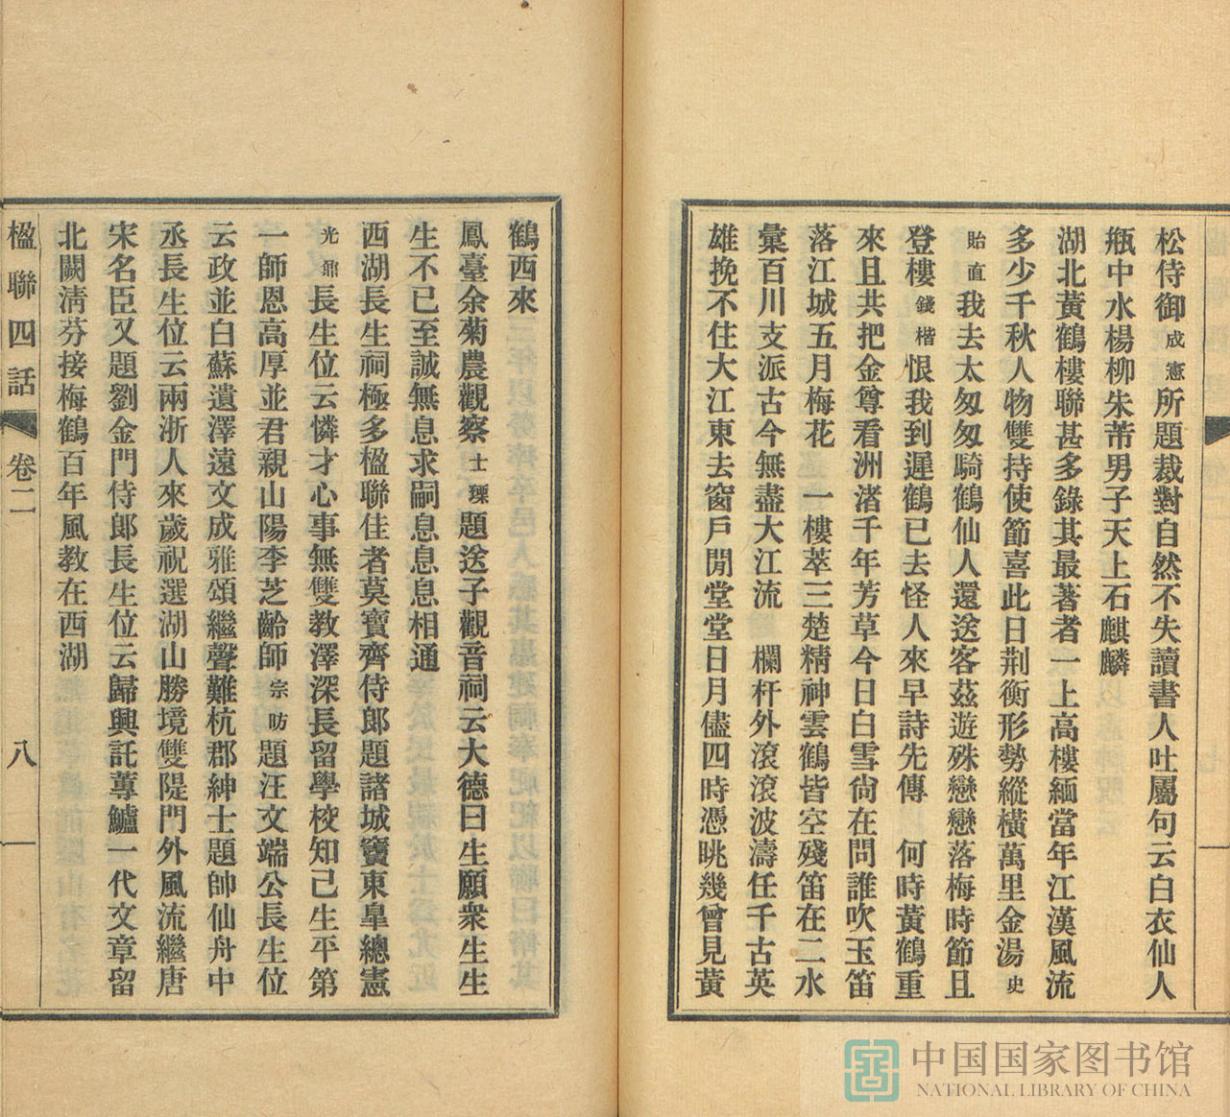 松侍御成憲所題裁對自然不失讀書人吐屬句云白衣仙人
瓶中水楊柳朱芾男子天上石麒麟
湖北黃鶴樓聯甚多錄其最著者一上高樓緬當年江漢風流
多少千秋人物雙持使節喜此日荆衡形勢縱橫萬里金湯史
貽直我去太匆匆騎鶴仙人還送客茲遊殊戀戀落梅時節且
登樓錢楷恨我到遲鶴已去怪人來早詩先傳　何時黃鶴重
來且共把金尊看洲渚千年芳草今日白雪尙在問誰吹玉笛
落江城五月梅花　一樓萃三楚精神雲鶴皆空殘笛在二水
彙百川支派古今無盡大江流　欄杆外滾滾波濤任千古英
雄挽不住大江東去窗戶閒堂堂日月儘四時憑眺幾曾見黃
鶴西來
鳳臺余菊農觀察士瑮題送子觀音祠云大德曰生願衆生生
生不已至誠無息求嗣息息息相通
西湖長生祠極多楹聯佳者莫寶齊侍郎題諸城竇東皐總憲
光鼐長生位云憐才心事無雙教澤深長留學校知己生平第
一師恩高厚並君親山陽李芝齡師宗昉題汪文端公長生位
云政並白蘇遺澤遠文成雅頌繼聲難杭郡紳士題帥仙舟中
丞長生位云兩浙人來歲祝選湖山勝境雙隄門外風流繼唐
宋名臣又題劉金門侍郎長生位云歸興託蓴鱸一代文章留
北闕淸芬接梅鶴百年風教在西湖
楹聯四話　卷二　八
中国国家图书馆
NATIONAL LIBRARY OF CHINA